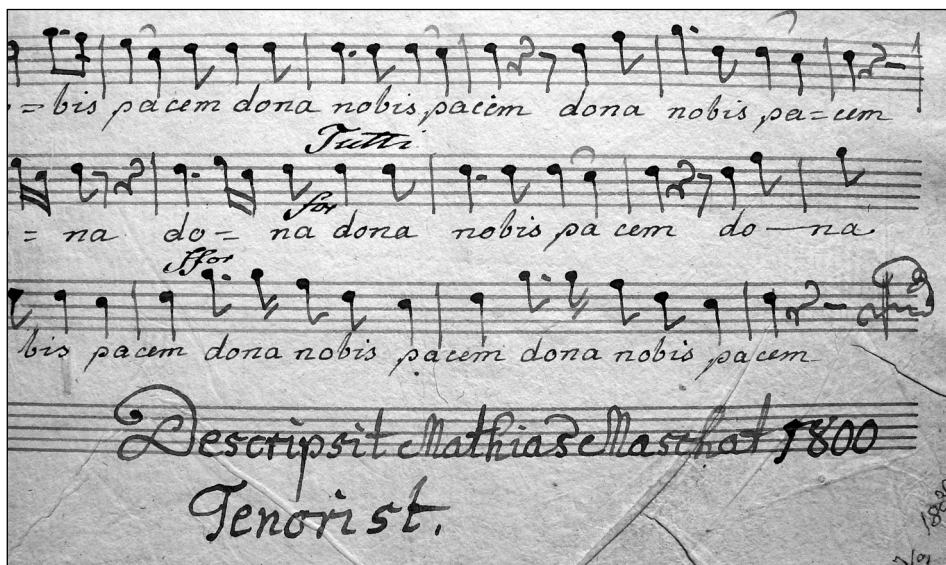 =bis pacem dona nobis pacem dona nobis pa=cem
Tutti
for
= na do= na dona nobis pa cem do—na
ffor
bis pacem dona nobis pacem dona nobis pacem
Descripsit Mathias Maschat 1800
Tenorist.